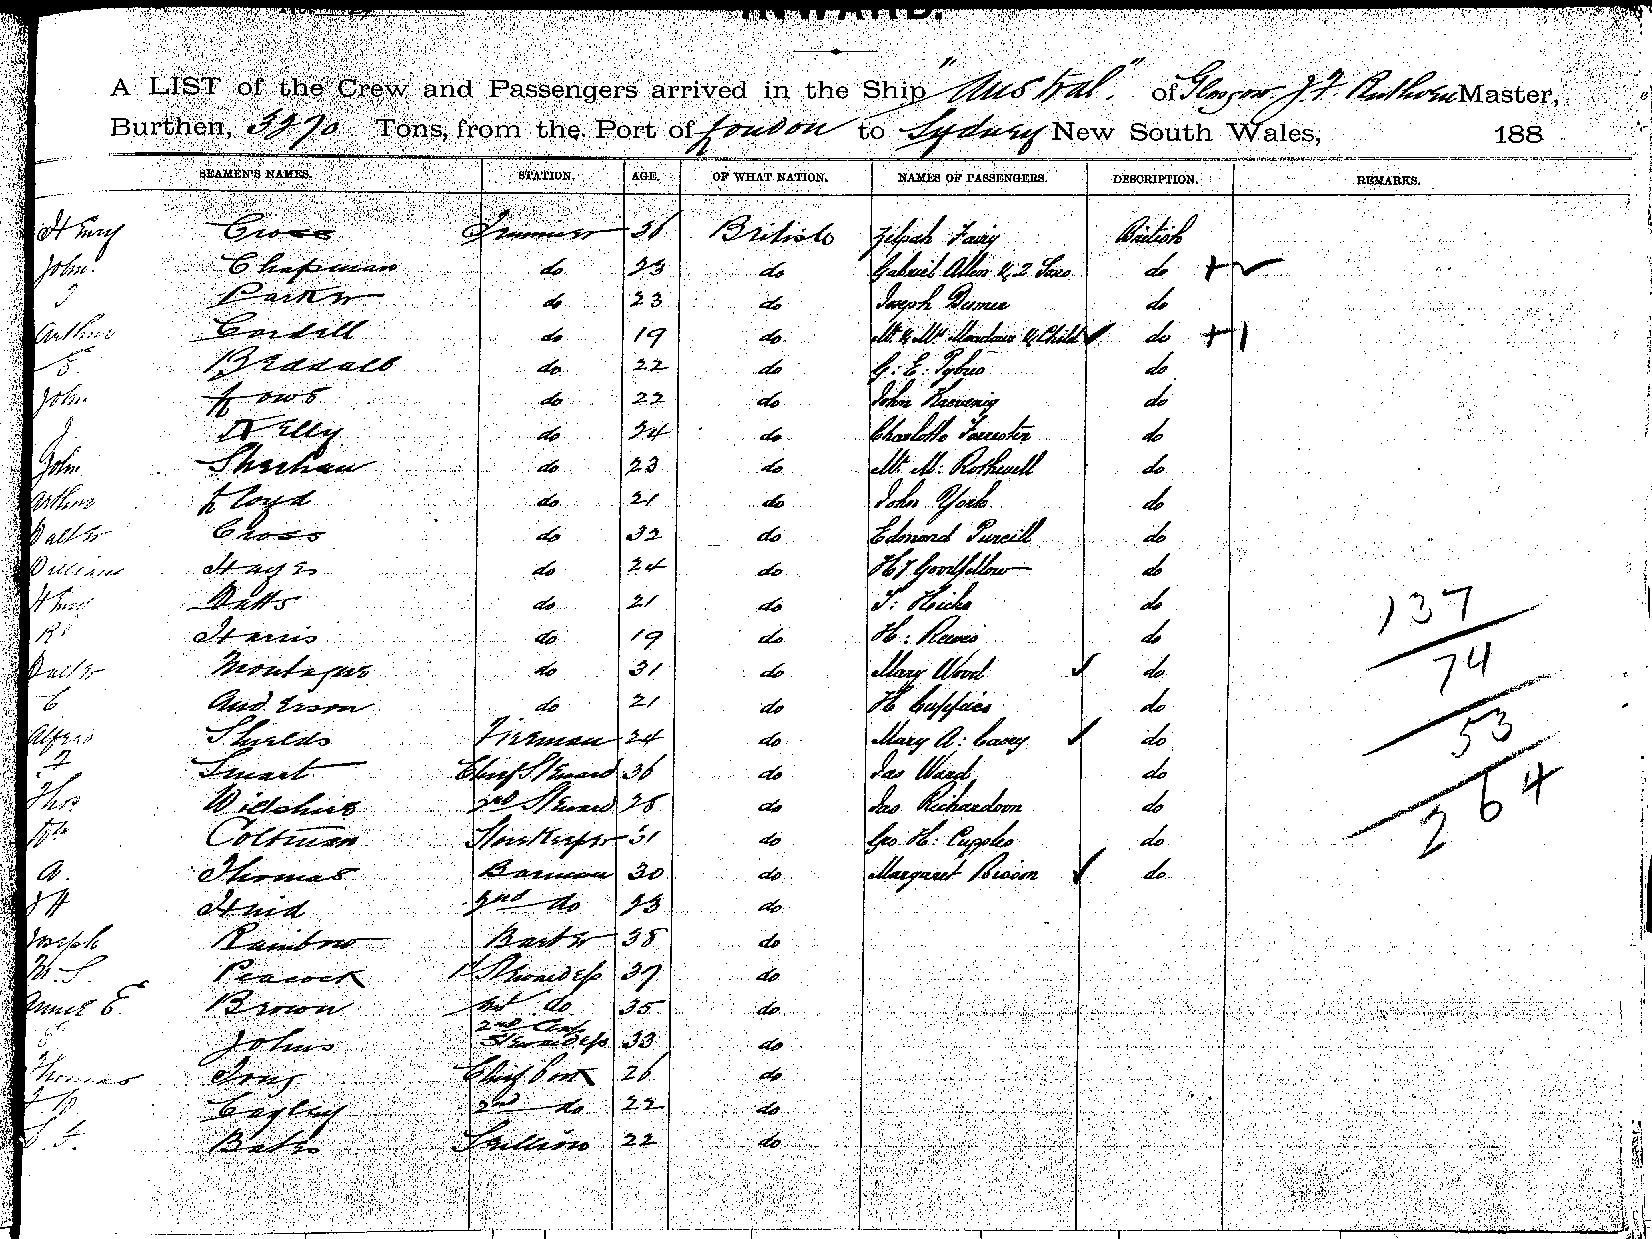 INWARD.
A LIST of the Crew and Passengers arrived in the Ship "Austral" of Glasgow J. F. Ruthven Master,
Burthen, 3270 Tons, from the Port of London to Sydney New South Wales, 188
SEAMEN'S NAMES. STATION. AGE. OF WHAT NATION. NAMES OF PASSENGERS. DESCRIPTION. REMARKS.
Henry Cross Trimmer 36 British Zilpah Fairy British
John Chapman do 23 do Gabriel Allen & 2 Sons do
J Parker do 23 do Joseph do
Arthur Cordell do 19 do Mr & Mrs & Child do
E Beddall do 22 do G. E. Tybus do
John do 22 do John do
J Kelly do 24 do Charlotte Forrester do
John Sheehan do 23 do Mr M. Rothwell do
Arthur Lloyd do 21 do John York do
Walter Cross do 32 do Edmond Purcill do
William Hayes do 24 do H J Goodfellow do
Henry Watts do 21 do T. Hicks do
Harris do 19 do H. Reeves do
Walter Montague do 31 do Mary Wood do
C Anderson do 21 do H do
Alfred Shields Fireman 24 do Mary A. Casey do
F Smart Chief Steward 36 do Jas Ward do
Thos Wiltshire 2nd Steward 25 do Jas Richardson do
Wm Coltman Storekeeper 31 do Geo. H. Cupples do
A. Thomas Barman 30 do Margaret do
J H Hind 2nd do 23 do
Joseph Rainbow Barber 38 do
M. S. Peacock 1st Stewardess 37 do
Annie E Brown do 35 do
E Johns 2nd Class Stewardess 33 do
Thomas Long Chief Cook 26 do
Cagley 2nd do 22 do
S. F. Bates Scullion 22 do
137
74
53
264